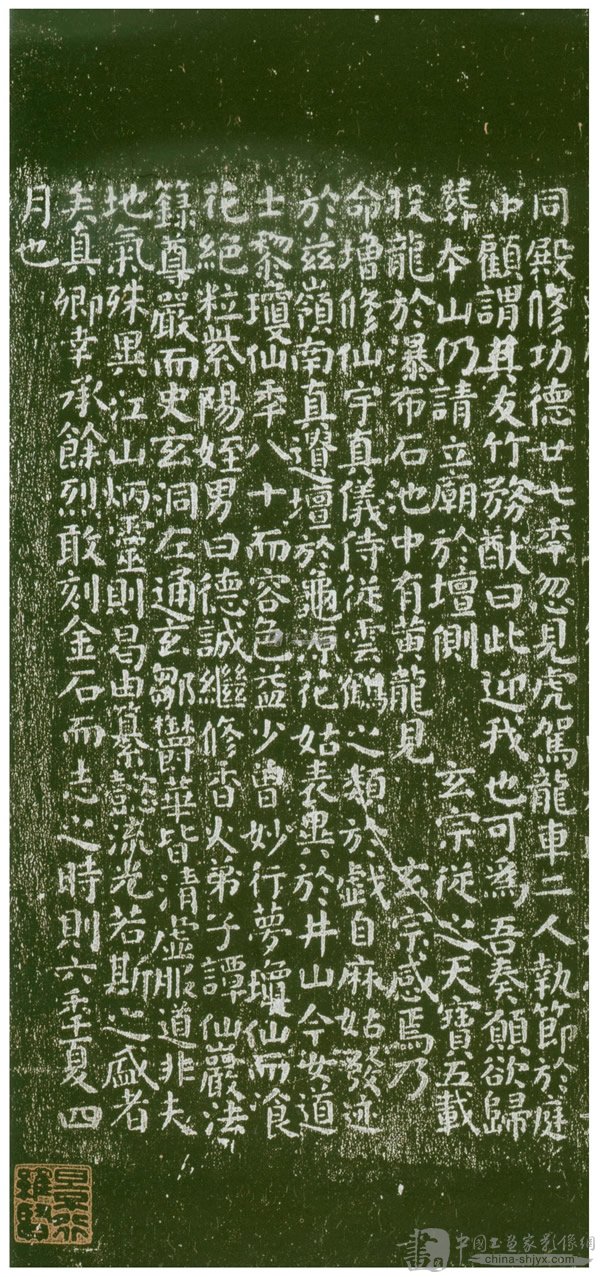 同殿修功德廿七年忽見虎駕龍車二人執節於庭
中顧謂其友竹務猷曰此迎我也可為吾奏願欲歸
葬本山仍請立廟於壇側 玄宗從之天寶五載
投龍於瀑布石池中有黃龍見 玄宗感焉乃
命增修仙宇真儀侍從雲鶴之類於戲自麻姑發迹
於茲嶺南真遺壇於龜源花姑表異於井山今女道
士黎瓊仙年八十而容色益少曾妙行夢瓊仙而飡
花絕粒紫陽姪男曰德誠繼修香火弟子譚仙巖法
籙尊嚴而史玄洞左通玄鄒鬱華皆清虛服道非夫
地氣殊異江山炳靈則曷由纂懿流光若斯之盛者
矣真卿幸承餘烈敢刻金石而志之時則六年夏四
月也
中國书画家影像網
china-shjyx.com